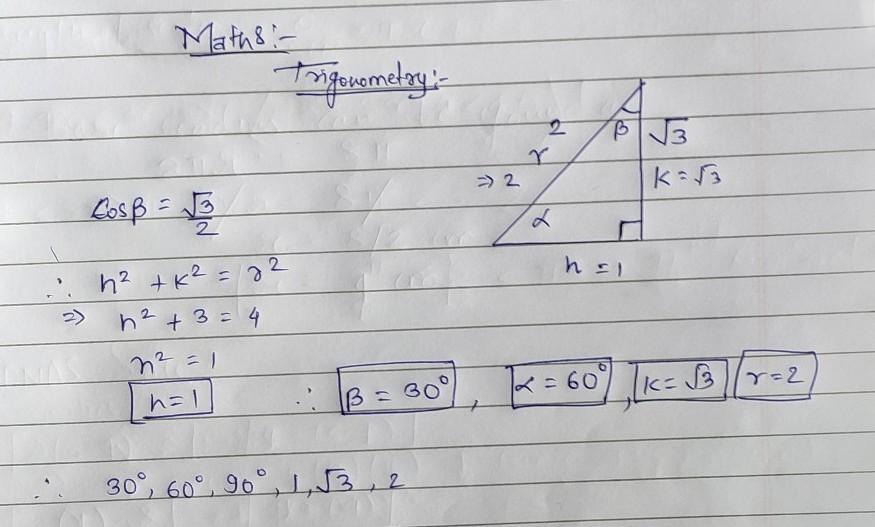 Maths:-
Trigonometry:-
2
r
⇒ 2
β
√3
K = √3
α
h = 1
Cosβ = √3/2
∴ h² + K² = r²
⇒ h² + 3 = 4
h² = 1
h = 1 ∴ β = 30°, α = 60°, K = √3 r = 2
∴ 30°, 60°, 90°, 1, √3, 2